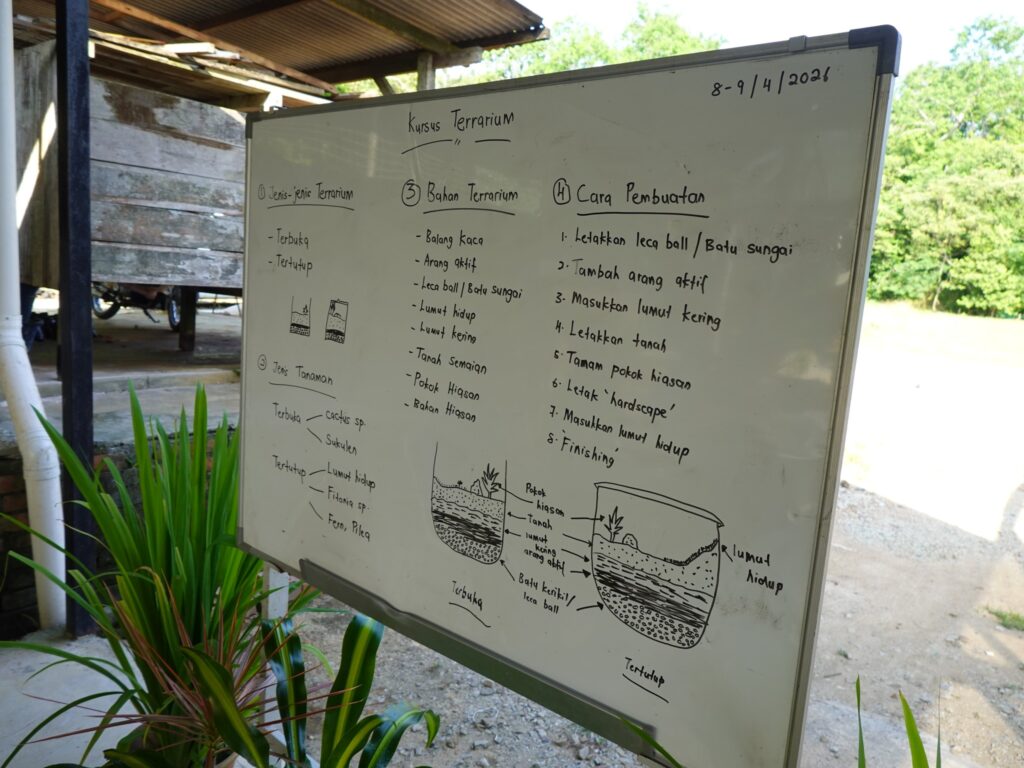 8-9/4/2026
Kursus Terrarium
① Jenis-jenis Terrarium
- Terbuka
- Tertutup
② Jenis Tanaman
Terbuka
cactus sp.
Sukulen
Tertutup
Lumut hidup
Fitonia sp.
Fern, Pilea
③ Bahan Terrarium
- Balang kaca
- Arang aktif
- Leca ball / Batu sungai
- Lumut hidup
- Lumut kering
- Tanah semaian
- Pokok Hiasan
- Bahan Hiasan
④ Cara Pembuatan
1. Letakkan leca ball / Batu sungai
2. Tambah arang aktif
3. Masukkan lumut kering
4. Letakkan tanah
5. Tanam pokok hiasan
6. Letak 'hardscape'
7. Masukkan lumut hidup
8. 'Finishing'
Pokok
hiasan
Tanah
lumut
kering
arang aktif
Batu kerikil /
leca ball
Terbuka
lumut
hidup
Tertutup